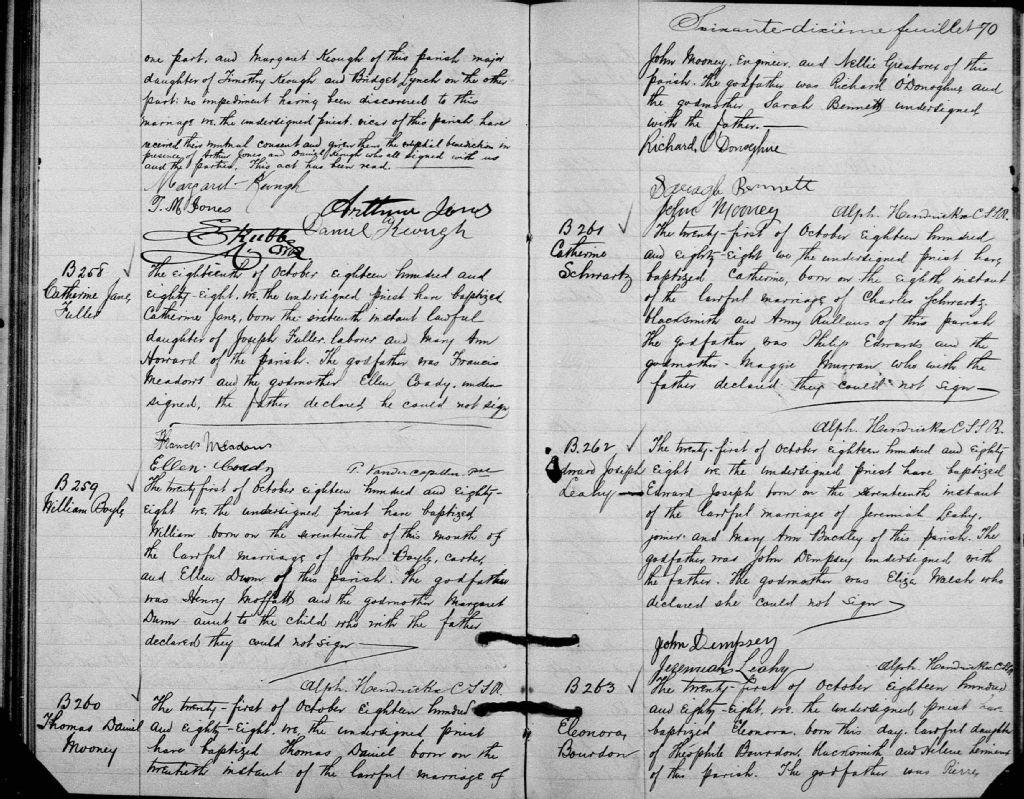 one part, and Margaret Keough of this parish major
daughter of Timothy Keough and Bridget Lynch on the other
part: no impediment having been discovered to this
marriage we, the undersigned priest, vicar of this parish have
received their mutual consent and given them the nuptial benediction in
presence of Arthur Jones, and Daniel Keough who all signed with us
and the parties. This act has been read.
Margaret Keough
T. M. Jones
Arthur Jones
Daniel Keough
B258
Catherine Jane,
Fuller
The eighteenth of October eighteen hundred and
eighty-eight, we, the undersigned priest have baptized
Catherine Jane, born the sixteenth instant lawful
daughter of Joseph Fuller, laborer and Mary Ann
Howard of the parish. The godfather was Francis
Meadows and the godmother Ellen Coady, under
signed, the father declared he could not sign
Francis Meadows
Ellen Coady
B259
William Boyle,
The twenty first of October eighteen hundred and eighty-
eight we, the undersigned priest have baptized
William born on the seventeenth of this month of
the lawful marriage of John Boyle, carter,
and Ellen Dunn of this parish. The godfather
was Henry Moffatt and the godmother Margaret
Dunn aunt to the child who with the father
declared they could not sign
Alph. Hendrickx C.SS.R.
B260
Thomas Daniel
Mooney
The twenty-first of October Eighteen hundred
and eighty-eight, we, the undersigned priest
have baptized Thomas Daniel born on the
twentieth instant of the lawful marriage of
Soixante-dixième feuillet 70
John Mooney, Engineer, and Nellie Greatores of this
parish. The godfather was Richard O'Donoghue and
the godmother Sarah Bennett undersigned
with the father.
Richard O'Donoghue
Bennett
John Mooney
Alph. Hendrickx C.SS.R.
B261
Catherine
Schwartz
The twenty-first of October Eighteen hundred
and eighty-eight we the undersigned priest have
baptized Catherine, born on the eighth instant
of the lawful marriage of Charles Schwartz
blacksmith and Anny of this parish
The godfather was Philip Edwards and the
godmother Maggie who with the
father declared they could not sign
Alph. Hendrickx C.SS.R.
B.262
Edward Joseph
Leahy
The twenty-first of October eighteen hundred and eighty
eight we the undersigned priest have baptized
Edward Joseph born on the seventeenth instant
of the lawful marriage of Jeremiah Leahy,
joiner and Mary Ann Buckley of this parish. The
godfather was John Dempsey undersigned with
the father. The godmother was Eliza Walsh who
declared she could not sign
John Dempsey
Jeremiah Leahy
Alph. Hendrickx C.SS.R.
B263
Eleonora,
Bourdon
The twenty-first of October Eighteen hundred
and eighty-eight, we, the undersigned, priest have
baptized Eleonora, born this day, lawful daughter
of Théophile Bourdon, and Helene
of this parish. The godfather was Pierre